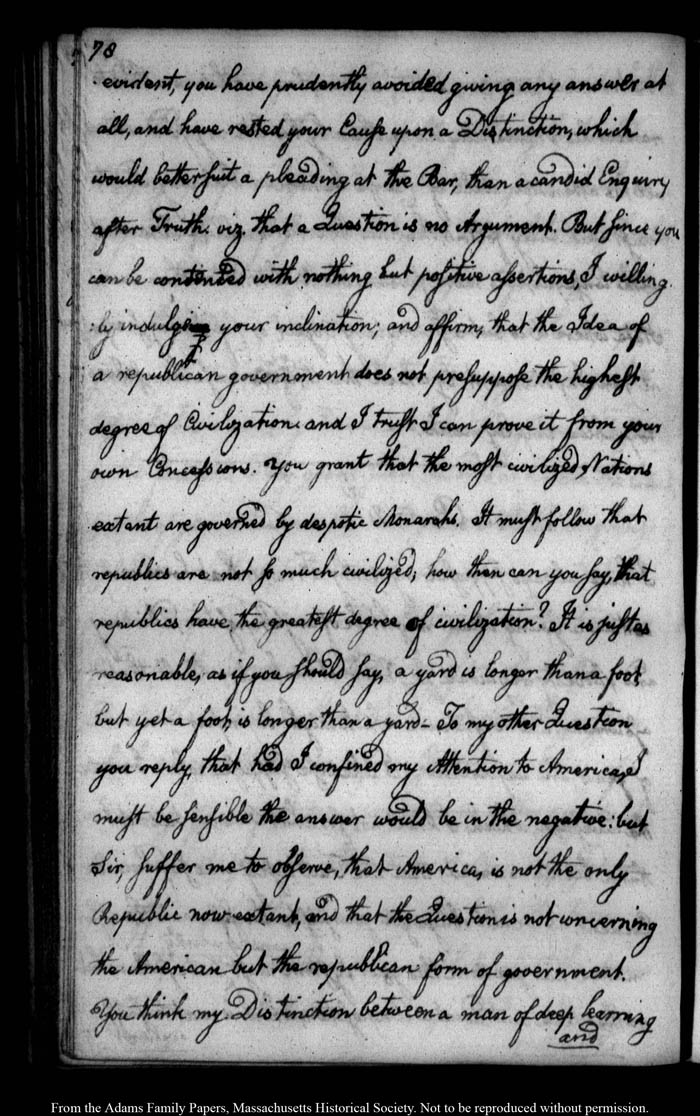 78
evident, you have prudently avoided giving any answer at
all, and have rested your Cause upon a Distinction, which
would better suit a pleading at the Bar, than a candid Enquiry
after Truth. viz. that a Question is no Argument. But since you
can be contented with nothing but positive assertions, I willing
:ly indulge your inclination; and affirm, that the Idea of
a republican government does not presuppose the highest
degree of Civilization. and I trust I can prove it from your
own Concessions. You grant that the most civilized Nations
extant are governed by despotic Monarchs. It must follow that
republics are not so much civilized; how then can you say, that
republics have the greatest degree of civilization? It is just as
reasonable, as if you should say, a yard is longer than a foot,
but yet a foot, is longer than a yard - To my other Question
you reply, that had I confined my Attention to America, I
must be sensible the answer would be in the negative: but
Sir, suffer me to observe, that America, is not the only
Republic now extant, and that the Question is not concerning
the American but the republican form of government.
You think my Distinction between a man of deep learning
and
From the Adams Family Papers, Massachusetts Historical Society. Not to be reproduced without permission.